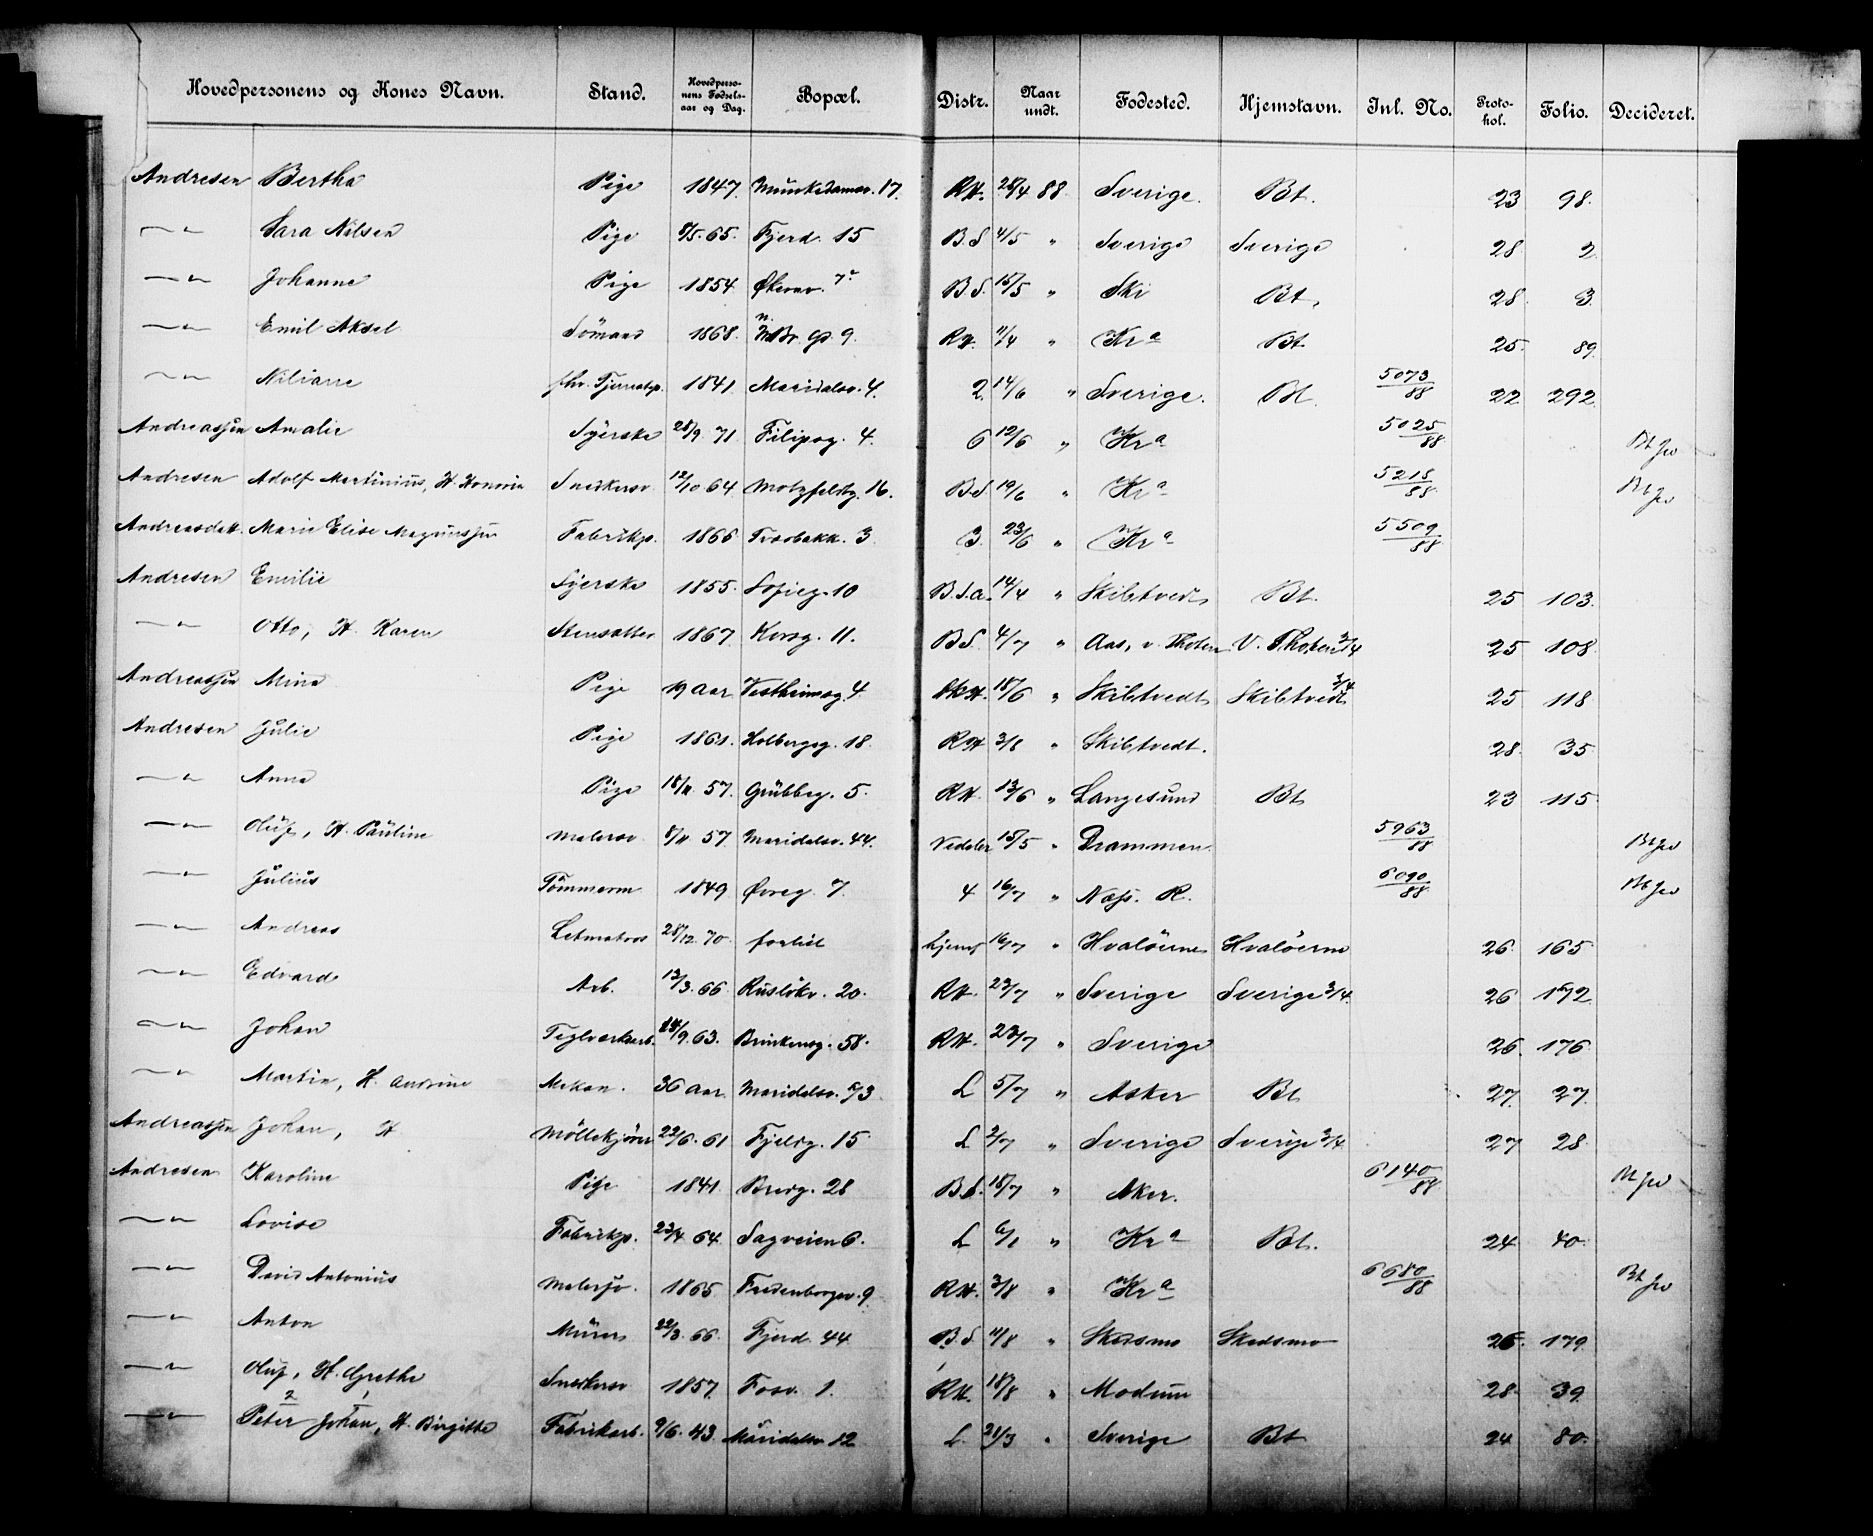 Hovedpersonens og Kones Navn. Stand. Hovedpersonens Fødselsaar og Dag. Bopæl. Distr. Naar undt. Fødested. Hjemstavn. Inl. No. Protokol. Folio. Decideret.
Andresen Bertha Pige 1847. Munkedamsv. 17. RH. 28/4 88 Sverige. Bt. 23 98.
—"— Sara Nilsen Pige 8/5. 65. Fjerd. 15 B.S 4/5 " Sverige Sverige 28 2
—"— Johanne Pige 1854 Økernv. 7a B.S. 15/5 " Ski Bt. 28 3
—"— Emil Aksel Sömand 1868. 9. RH. 11/4 " Kra Bt 25. 89.
—"— Niliane 1841. Maridalsv. 4. 2. 14/6 " Sverige. Bt 5073/88 22 292
Andreassen Amalie Syerske 28/9. 71. Filipsg. 4. 6 12/6 " Kra 5025/88
Andresen Adolf Martinius, H. Snedkersv. 12/10 64 Motzfeldtg. 16. B.S 19/6 " Kra 5218/88
Andreasdatt. Marie Elise Magnussen Fabrikp. 1866 3 3. 23/6 " Kra 5509/88
Andresen Emilie Syerske 1855. Sofieg. 10 B.S.a. 14/4 " Skibtvedt Bt. 25 103.
—"— Otto, H. Karen Stensætter 1867. Korsg. 11. B.S. 4/7 " Aas, v. Thoten V. Thoten 3/4 25 108
Andreassen Mina Pige 19 Aar Vestheimsg. 4. 18/6 " Skibtvedt Skibtvedt 3/4 25 118
Andresen Julie Pige 1861. Holbergsg. 18. RH 3/8 " Skibtvedt. 28. 35
—"— Anna Pige 18/11 57. Grübbeg. 5. RH. 13/6 " Langesund Bt 23 115
—"— Oluf, H. Pauline Malersv. 8/11 57 Maridalsv. 44. 15/5 " Drammen 5963/88
—"— Julius Tömmerm 1849 Øvreg. 7. 4 16/7 " Næs. R. 6090/88
—"— Andreas Letmatros 28/12. 70 forhist 16/7 " Hvalöerne Hvalöerne 26. 165
—"— Edvard Arb. 12/3. 66 Ruslökv. 20. RH. 23/7 " Sverige Sverige 3/4. 26 172
—"— Johan Teglverksarb. 9. 63. 58. RH. 23/7 " Sverige 26. 176
—"— Martin, H. Andrine Mekan. 36 Aar Maridalsv. 73 L 5/7 " Asker Bt 27. 27.
Andreassen Johan, H Möllekjörer 22/6. 61 Fjeldg. 15 L 2/7 " Sverige Sverige 3/4. 27 28.
Andresen Karoline Pige 1841. Bredg. 28 B.S. 18/7 " Aker. 6140/88
—"— Lovise Fabrikp. 23/4 64. Sagveien 6. L 6/1 " Kra Bt. 24 40.
—"— David Antonius Malersv. 1865 Fredensborgv. 9 RH. 3/8 " Kra 6680/88
—"— Anton Mürer 22/3. 66. Fjerd. 44 B.S 11/8 " Skedsmo Skedsmo 26. 179
—"— Oluf, H. Grethe Snedkersv 1857. Fosv. 1. RH. 18/8 " Modum 28. 39.
—"— Peter Johan, H. Birgitte Fabrikarb. 9/6. 43. Maridalsv 12 L. 21/3 " Sverige Bt 24 80.